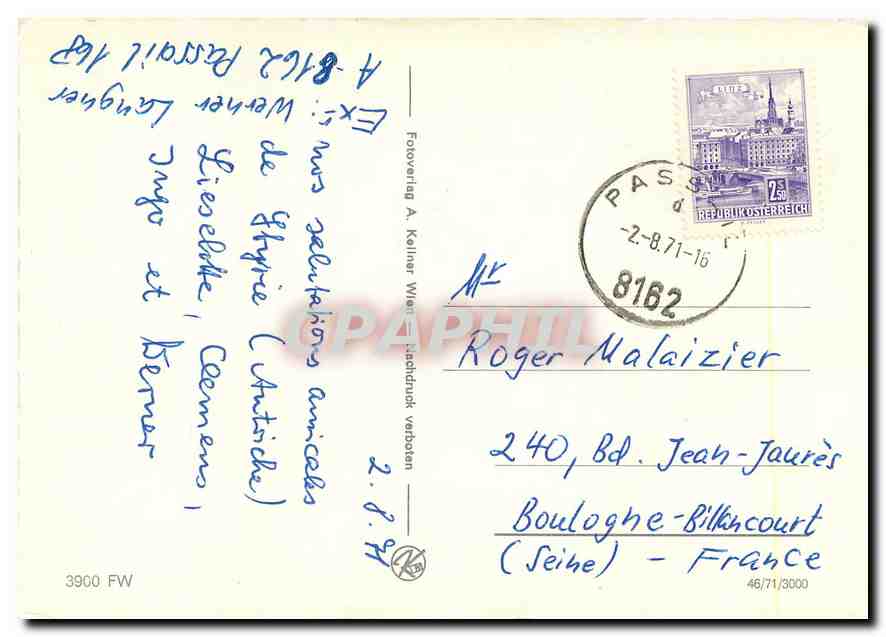 2. 8. 71
nos salutations amicales
de Styrie (Autriche)
Lieselotte, Clemens,
Ingo et Werner
Exp.: Werner Langner
A-8162 Passail 168
Fotoverlag A. Kellner Wien — Nachdruck verboten
3900 FW
LINZ
2.50
S
REPUBLIK ÖSTERREICH
PASSAIL
d
-2.-8.71-16
8162
Mr
Roger Malaizier
240, Bd. Jean-Jaurès
Boulogne-Billancourt
(Seine) - France
46/71/3000
CPAPHIL